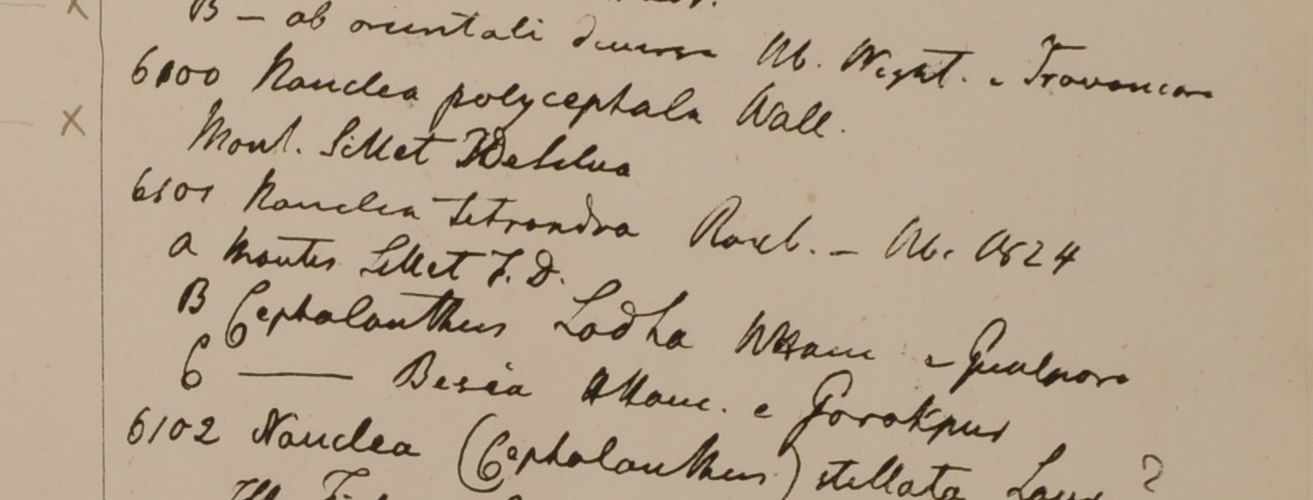 B – ab orientali diversa Hb. Wight. e Travancore
6100 Nauclea polycephala Wall.
Mont. Sillet De Silva
6101 Nauclea tetrandra Roxb. – Hb. 1824
a montes Sillet F. D.
B Cephalanthus Lodha Ham e Gualpara
C ——— Besea Ham. e Gorakpur
6102 Nauclea (Cephalanthus) stellata Lour ?